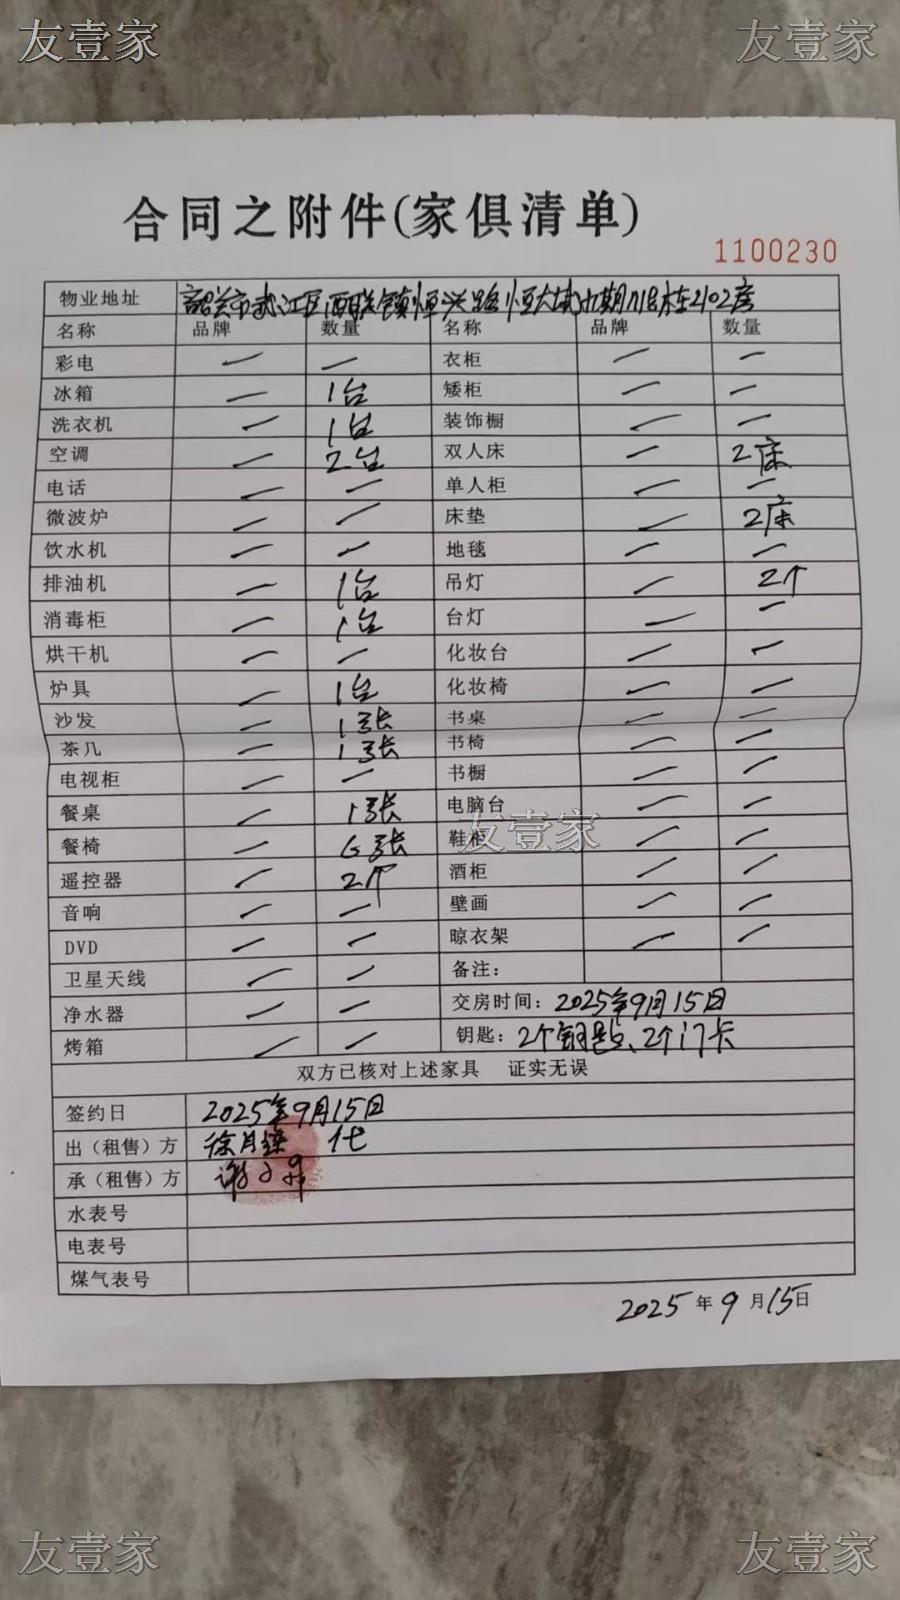 友壹家 友壹家
合同之附件(家俱清单)
1100230
物业地址 韶关市武江区西联镇恒兴路恒大城九期118栋2102房
名称 品牌 数量 名称 品牌 数量
彩电 — — 衣柜 — —
冰箱 — 1台 矮柜 — —
洗衣机 — 1台 装饰橱 — —
空调 — 2台 双人床 — 2床
电话 — — 单人柜 — —
微波炉 — — 床垫 — 2床
饮水机 — — 地毯 — —
排油机 — 1台 吊灯 — 2个
消毒柜 — 1台 台灯 — —
烘干机 — — 化妆台 — —
炉具 — 1台 化妆椅 — —
沙发 — 1张 书桌 — —
茶几 — 1张 书椅 — —
电视柜 — — 书橱 — —
餐桌 — 1张 电脑台 — —
友壹家
餐椅 — 6张 鞋柜 — —
遥控器 — 2个 酒柜 — —
音响 — — 壁画 — —
DVD — — 晾衣架 — —
卫星天线 — — 备注:
净水器 — — 交房时间: 2025年9月15日
烤箱 — — 钥匙: 2个钥匙、2个门卡
双方已核对上述家具 证实无误
签约日 2025年9月15日
出（租售）方 徐月 代
承（租售）方 谢
水表号
电表号
煤气表号
2025年9月15日
友壹家 友壹家